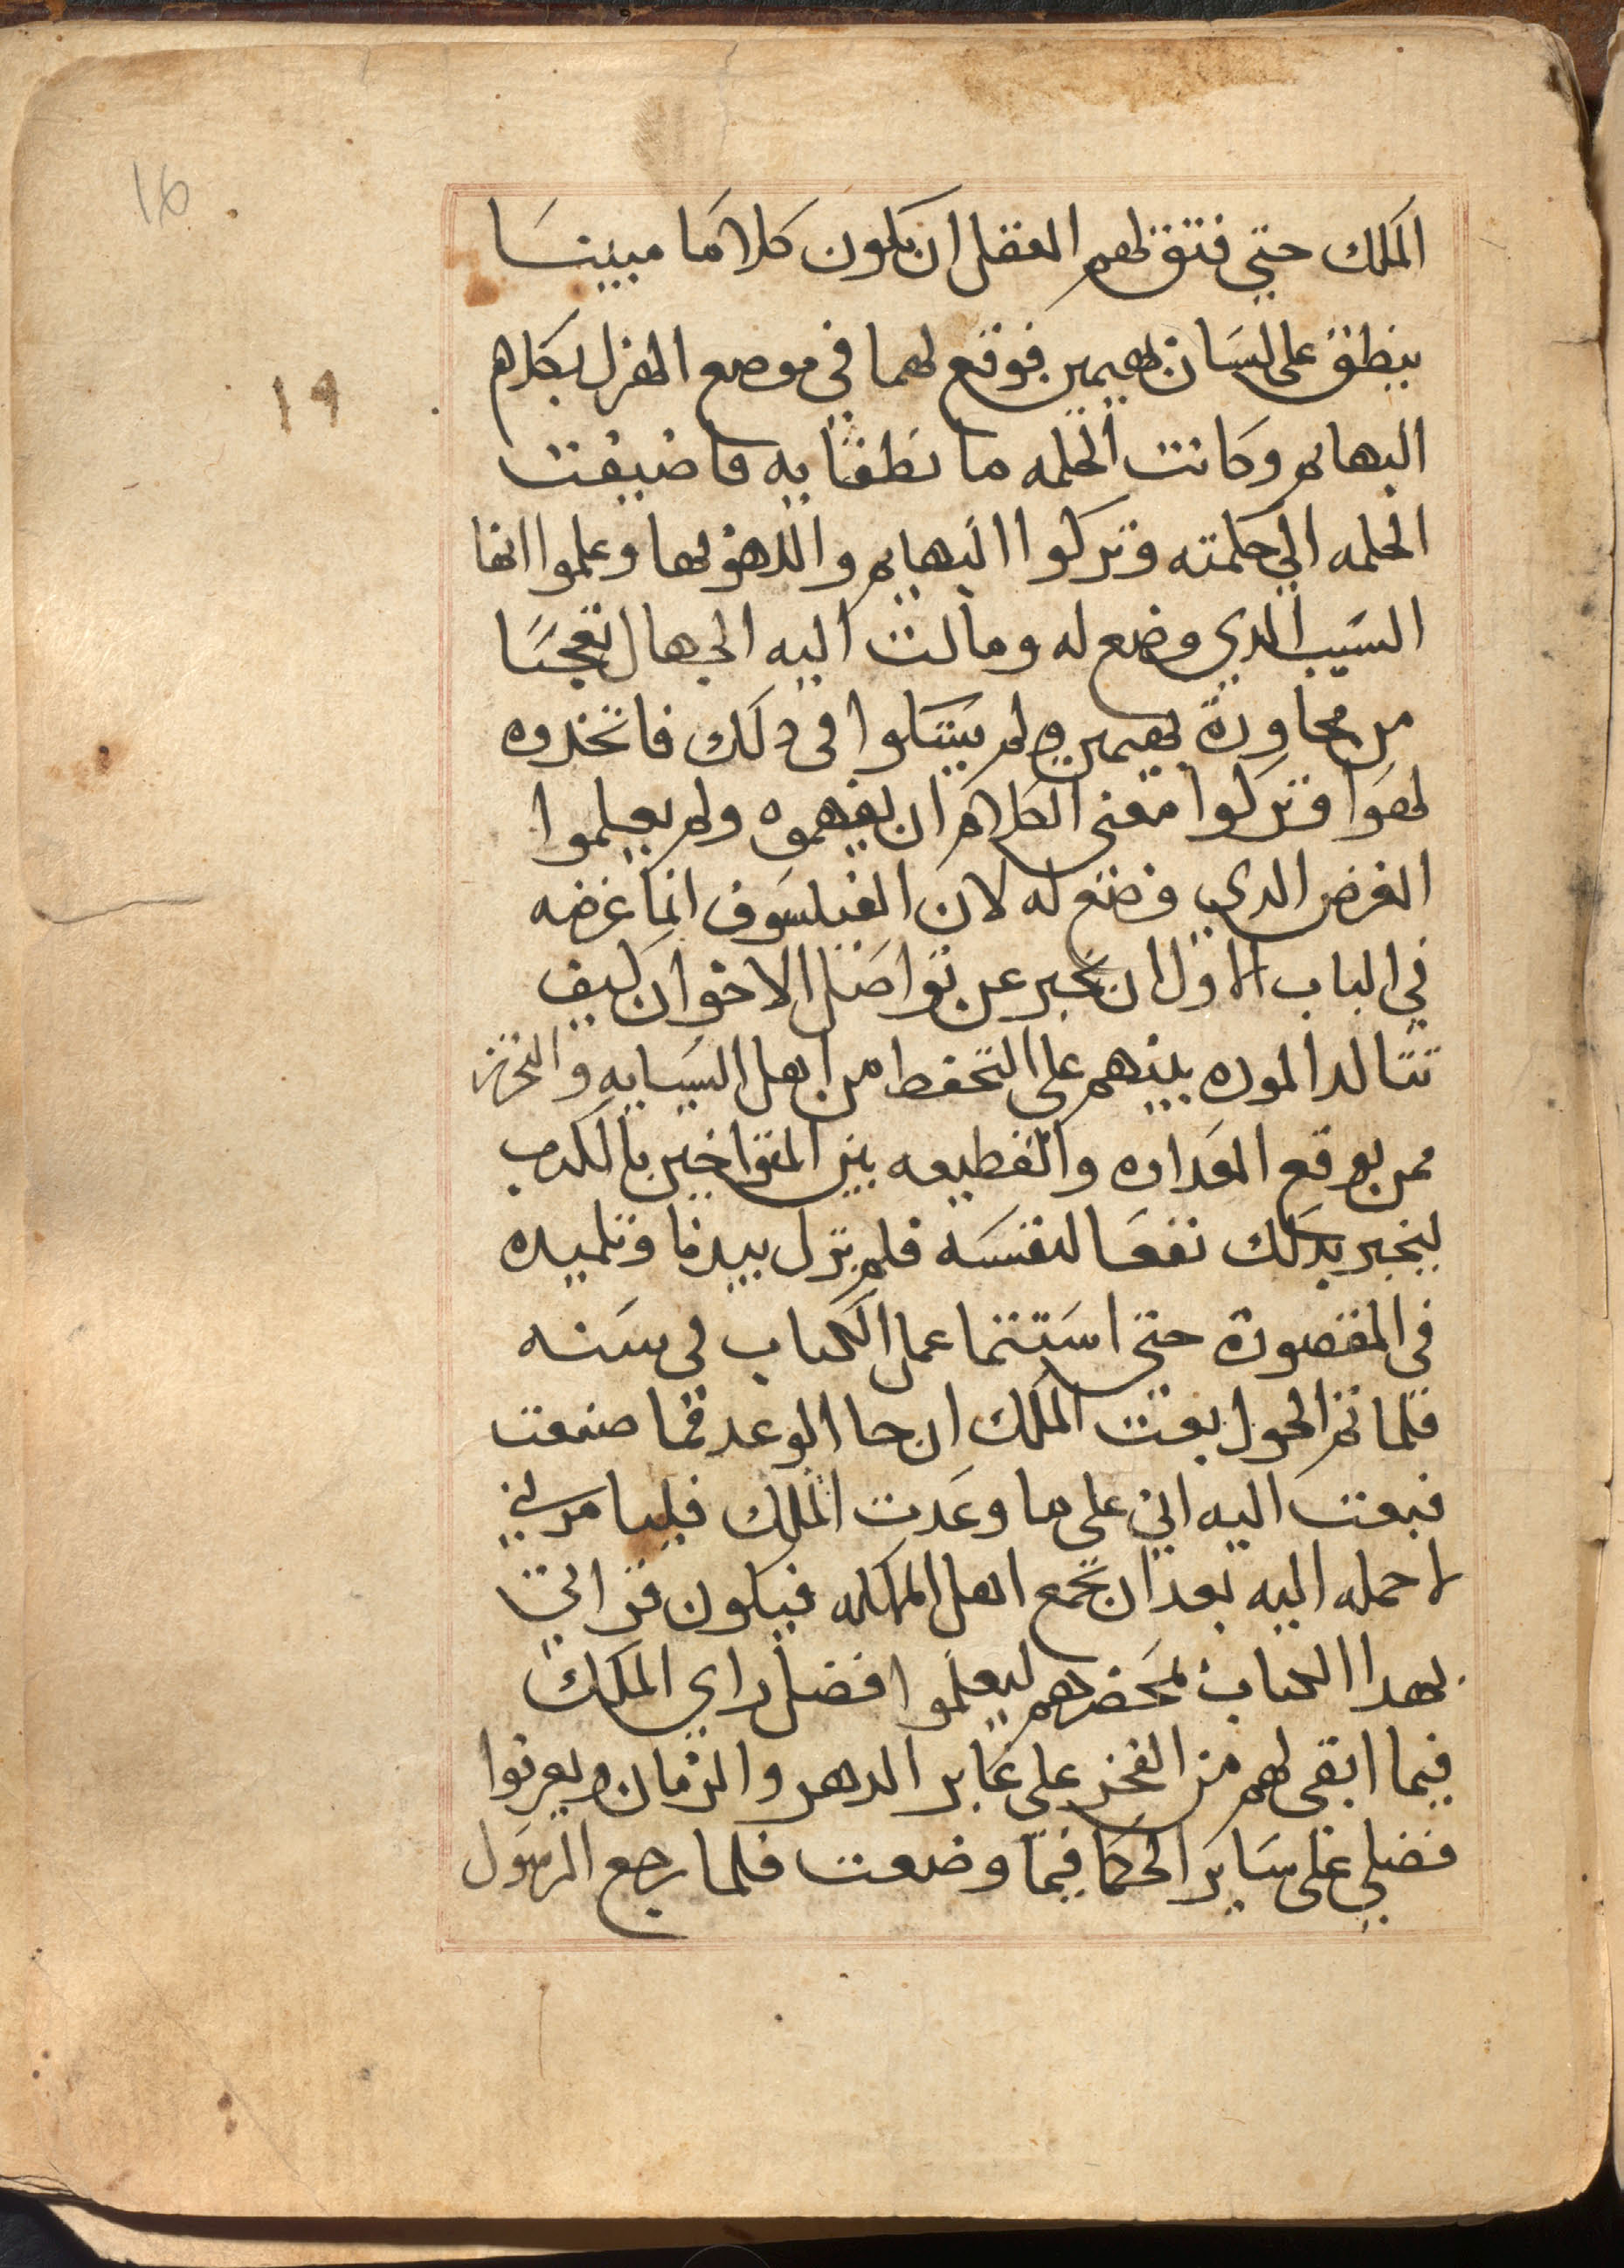 16
١٦
الملك حتى فتق لهم العقل ان يكون كلامًا مبينسَا
ينطق على لسَان بهيمين فوقع لهما في موضع الهزل بكلام
البهايم وكانت الحكمه ما نطقا به فاضيفت
الحكمه الي حكمته وتركوا البهايم واللهو بها وعلموا انها
السَبب الدي وضع له ومالت اليه الجهال تعجبَا
من محاورة بهيمين ولم يشكوا في دلك فاتخدوه
لهوَا وتركوا معنى الكلام ان يفهموه ولم يعلموا
الغرض الدي وضع له لان الفيلسَوف انما غرضه
في الباب الاول ان يخبر عن تواصَل الاخوان كيف
تتاكد الموده بينهم على التحفظ من اهل السَعايه والتحرز
ممن يوقع العَداوه والقطيعه بين المتواخيين بالكدب
ليجر بدَلك نفعَا لنفسَه فلم يزل بيدبا وتلميده
في المقصورة حتى استتما عمل الكتاب في سَنه
فلما تم الحول بعت الملك ان جا الوعد فما صنعت
فبعت اليه اني على ما وعَدت الملك فليامرني
لاحمله اليه بعد ان تجمع اهل المملكه فيكون قراتي
بهدا الكتاب بمحَضرهم ليعلموا افضل راي الملك
فيما ابقى لهم من الفخر على غابر الدهر والزمان ويعرفوا
فضلي على سَاير الحكما فيما وضعت فلما رجع الرسَول